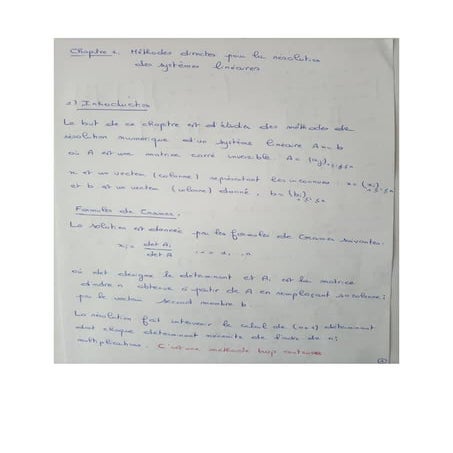 Chapitre 1. Méthodes directes pour la résolution
des systèmes linéaires
1) Introduction
Le but de ce chapitre est d'étudier des méthodes de
résolution numérique d'un système linéaire Ax = b
où A est une matrice carré inversible. A = (aij)
x est un vecteur (colonne) représentant les inconnues : x = (xi)
et b est un vecteur (colonne) donné, b = (bi)
Formules de Cramer.
La solution est donnée par les formules de Cramer suivantes.
xi = det Ai / det A i = 1, .., n
où det désigne le déterminant et Ai est la matrice
d'ordre n obtenue à partir de A en remplaçant sa colonne i
par le vecteur second membre b.
La résolution fait intervenir le calcul de (n+1) déterminant
dont chaque déterminant nécessite de l'ordre de n!
multiplications. C'est une méthode trop couteuse